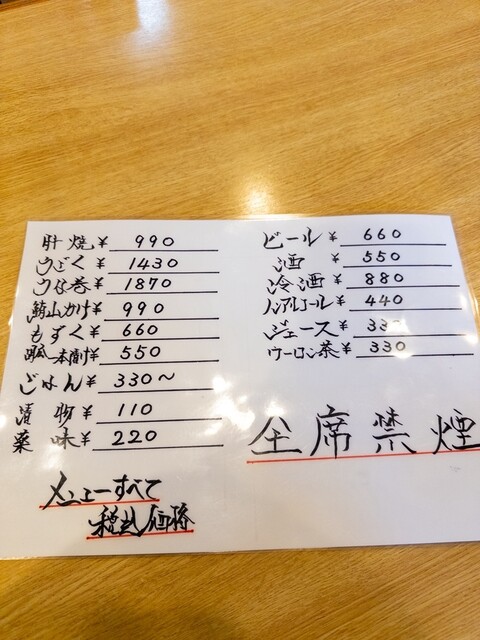 肝焼 ¥ 990
うざく ¥ 1430
うな巻 ¥ 1870
鮪山かけ ¥ 990
もずく ¥ 660
¥ 550
ごはん ¥ 330〜
漬物 ¥ 110
薬味 ¥ 220
メニューすべて
税込価格
ビール ¥ 660
酒 ¥ 550
冷酒 ¥ 880
ノンアルコール ¥ 440
ジュース ¥ 33
ウーロン茶 ¥ 330
全席禁煙